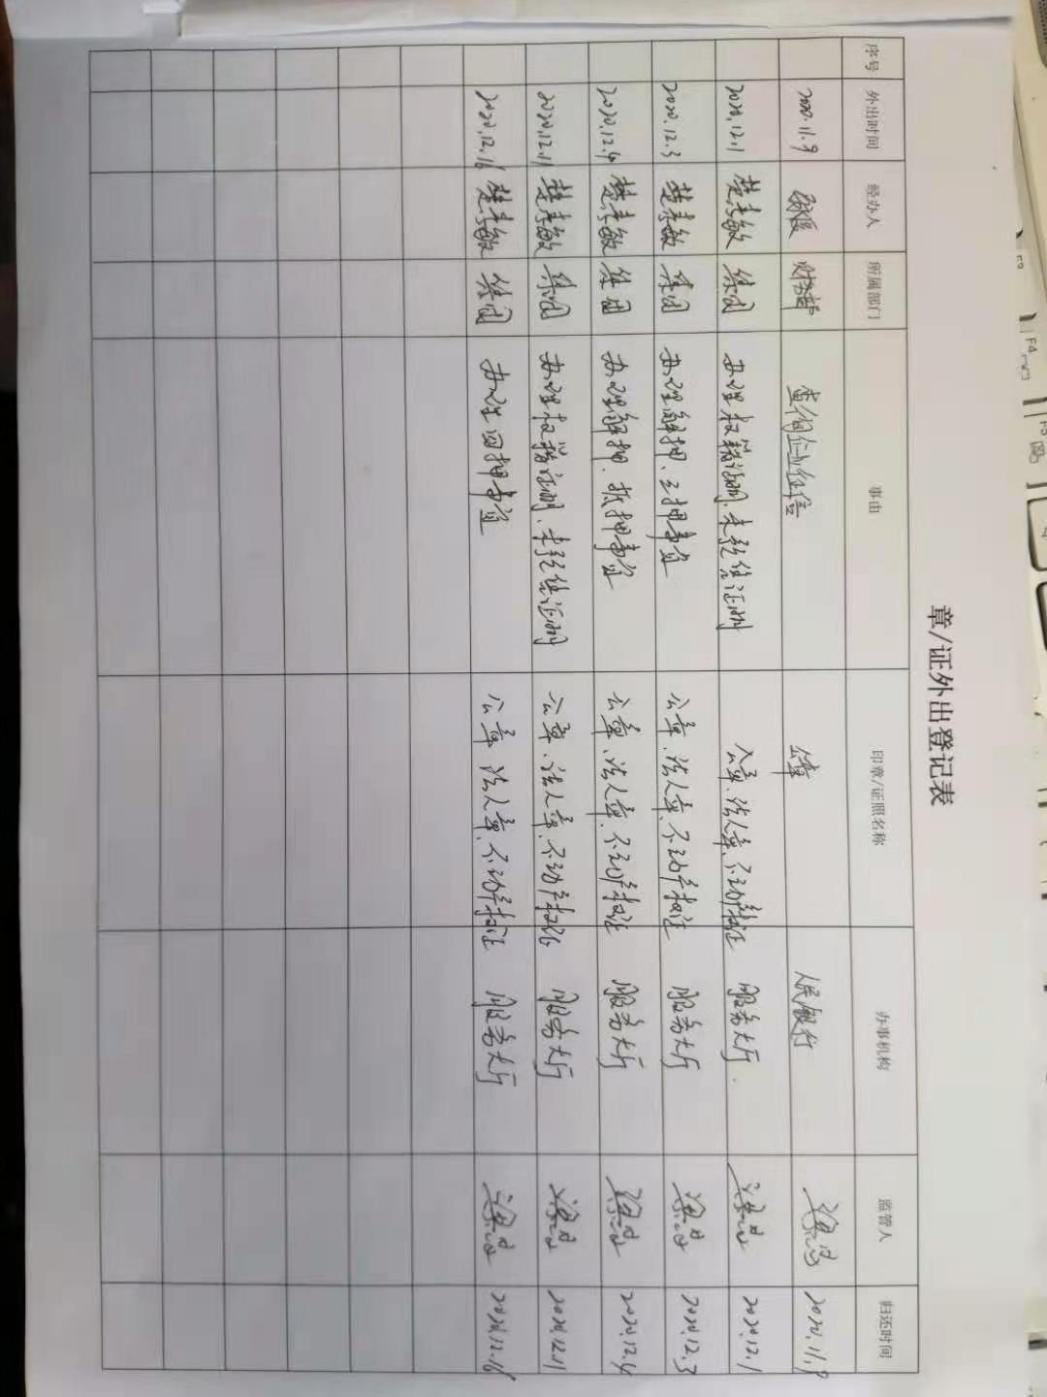 章/证外出登记表
序号 外出时间 经办人 所属部门 事由 印章/证照名称 办事机构 监管人 归还时间
2020.11.9 财务部 查询企业征信 公章 人民银行 2020.11.9
2020.12.1 楚秀敏 集团 办理权籍证明、未预售证明 公章、法人章、不动产权证 服务大厅 2020.12.1
2020.12.3 楚秀敏 集团 办理解押、 公章、法人章、不动产权证 服务大厅 2020.12.3
2020.12.4 楚秀敏 集团 办理解押、抵押事宜 公章、法人章、不动产权证 服务大厅 2020.12.4
2020.12.11 楚秀敏 集团 办理权籍证明、未预售证明 公章、法人章、不动产权证 服务大厅 2020.12.11
2020.12.16 楚秀敏 集团 公章、法人章、不动产权证 服务大厅 2020.12.16
F3
F4
F5